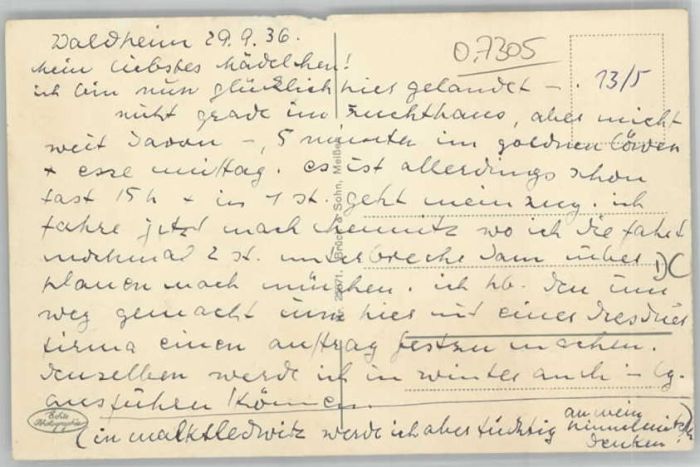 Waldheim 29.9.36.
0,7305
mein liebstes Mädelchen!
13/5
ich bin nun glücklich hier gelandet – .
nicht grade im Zuchthaus, aber nicht
weit davon –, 5 minuten im goldnen Löwen
+ esse mittag. es ist allerdings schon
fast 15 h + in 1 st. geht mein zug. ich
fahre jetzt nach chemnitz wo ich die fahrt
nochmal 2 st. unterbreche dann über
plauen nach münchen. ich hb. den um
weg gemacht um hier mit einer dresdner
firma einen auftrag festzumachen.
denselben werde ich im winter auch in
ausführen können.
(in marktredwitz werde ich aber tüchtig
an mein
denken!
Echte
Photographie
Brück & Sohn, Meißen